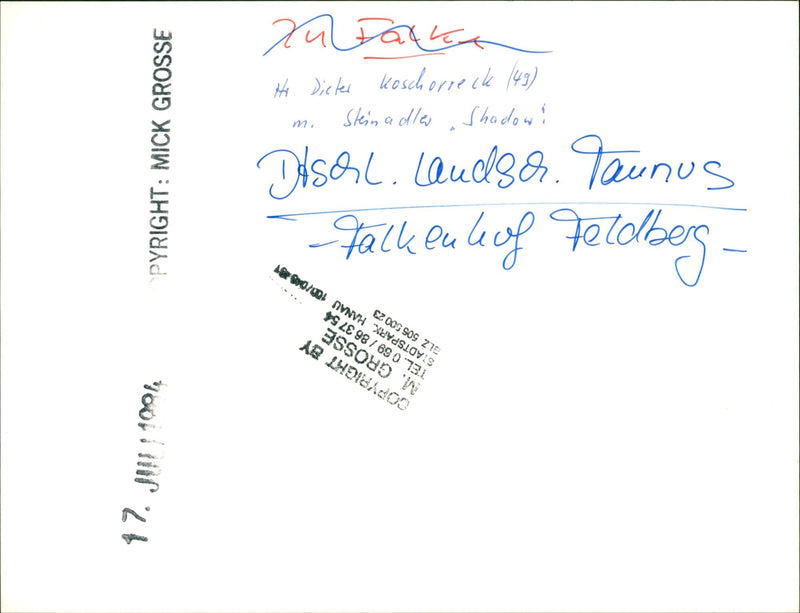 Zu Falke
Hr. Dieter Koschorreck (49)
m. Steinadler „Shadow“!
Dtschl. Landsch. Taunus
- Falkenhof Feldberg -
PYRIGHT: MICK GROSSE
17. JULI 1994
COPYRIGHT BY
M. GROSSE
TEL. 0 69 / 86 37 54
STADTSPARK. HANAU
BLZ 506 500 23